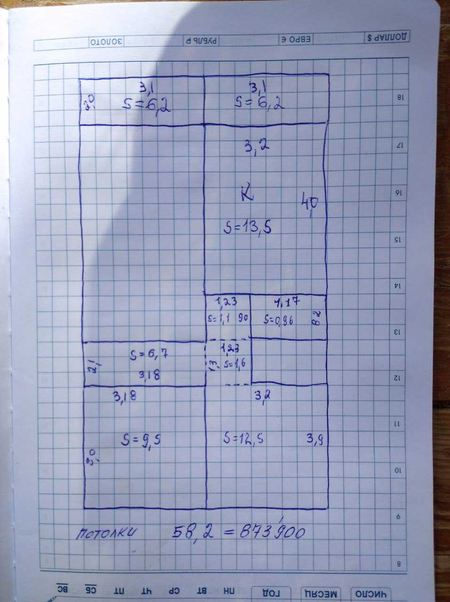 3,1 3,1
2,0 S=6,2 S=6,2
3,2
К 4,0
S=13,5
1,23 1,17
S=1,1 90 S=0,96 82
S=6,7 1,23
2,1 3,18 1,3 S=1,6
3,18 3,2
S=9,5 S=12,5 3,9
3,0
ПОТОЛКИ 58,2 = 873900
ДОЛЛАР $ ЕВРО € РУБЛЬ ₽ ЗОЛОТО
18
17
16
15
14
13
12
11
10
9
8
ЧИСЛО МЕСЯЦ ГОД ПН ВТ СР ЧТ ПТ СБ ВС